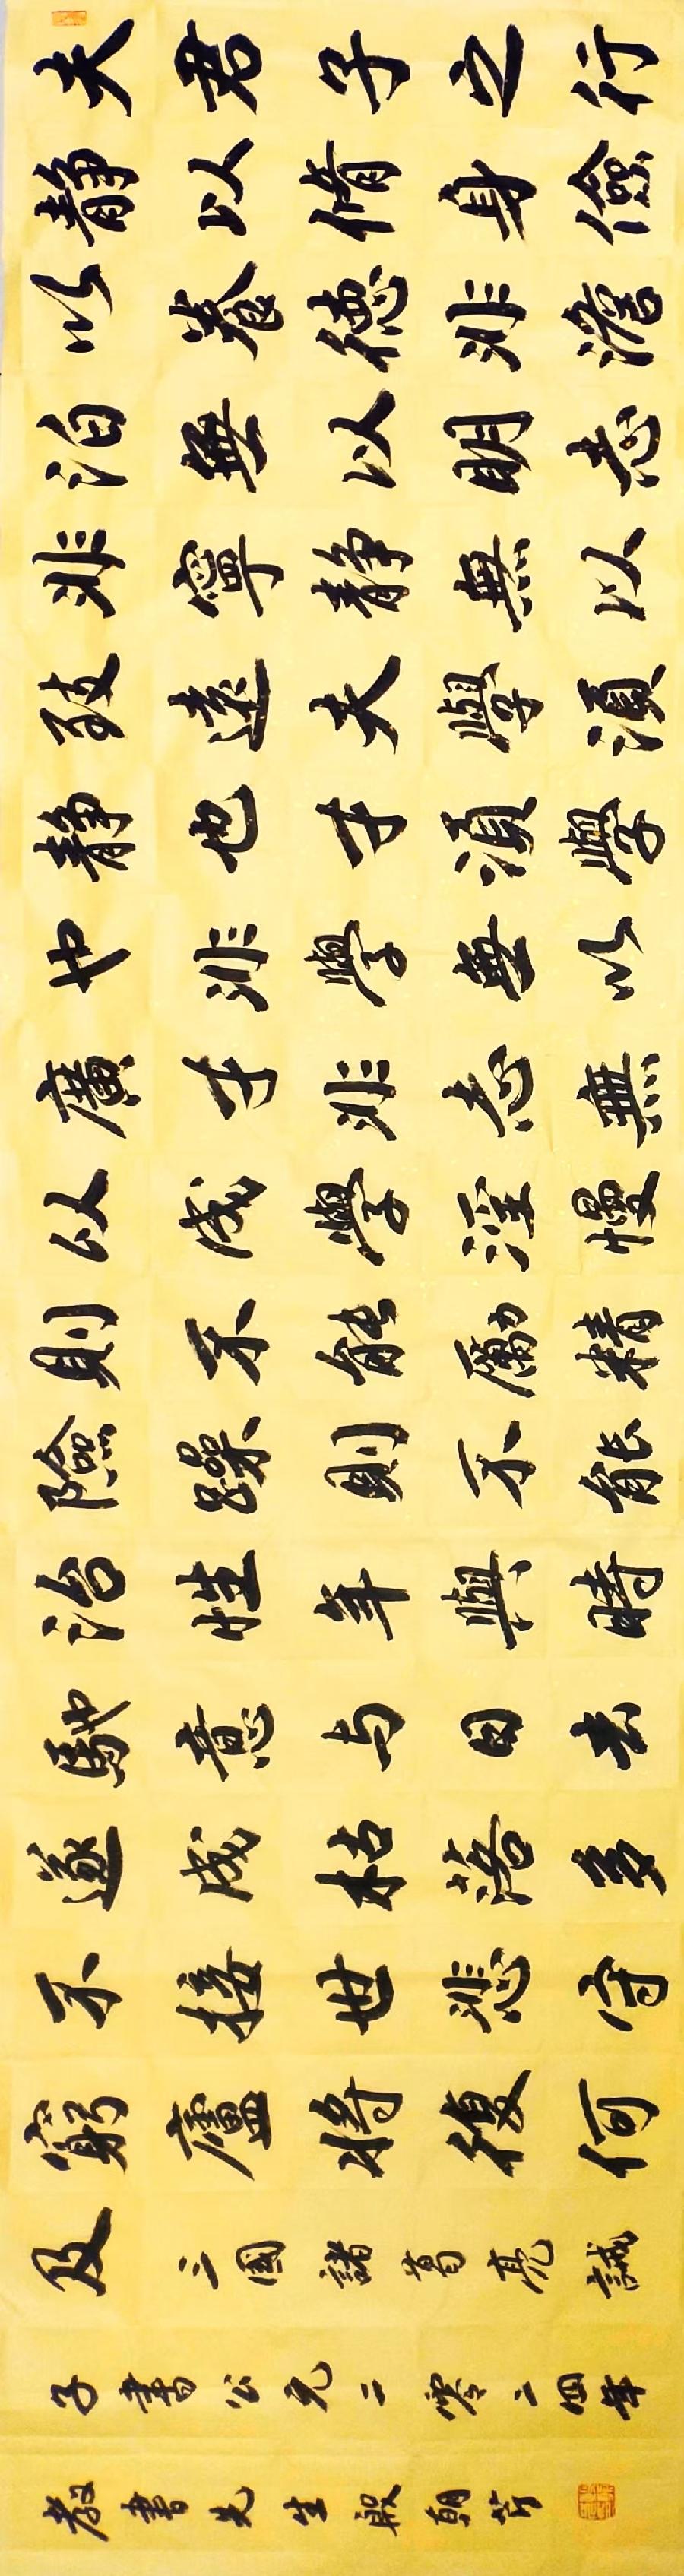 夫君子之行
静以脩身儉
以養德非澹
泊無以明志
非寧静無以
致遠夫學須
静也才須學
也非學無以
廣才非志無
以成學淫慢
則不能勵精
險躁則不能
治性年與時
馳意与日去
遂成枯落多
不接世悲守
窮廬將復何
及三國諸葛亮誡
子書公元二零二四年
教書先生殷朝